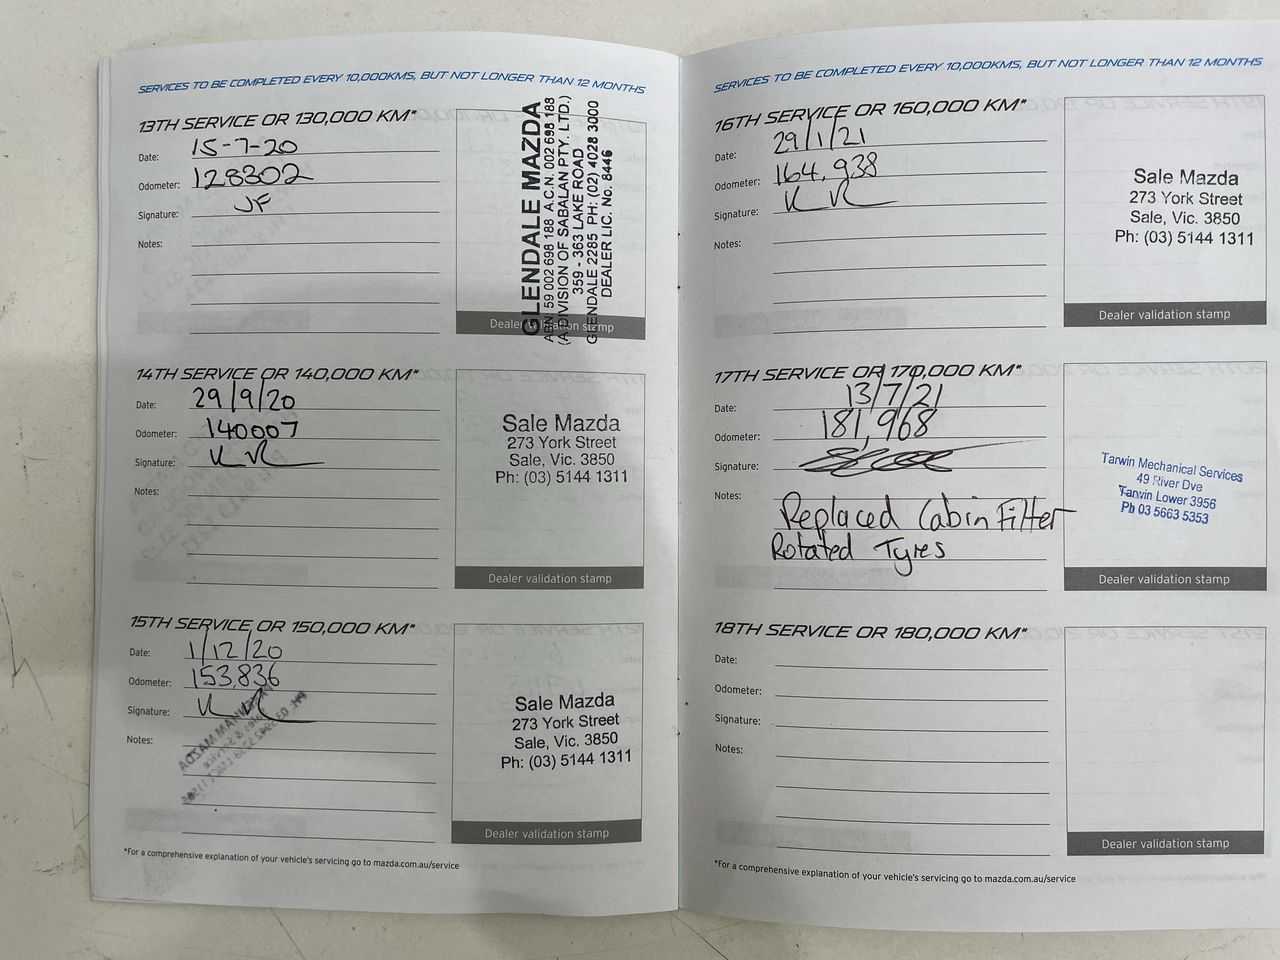 SERVICES TO BE COMPLETED EVERY 10,000KMS, BUT NOT LONGER THAN 12 MONTHS
13TH SERVICE OR 130,000 KM*
Date: 15-7-20
Odometer: 128302
Signature: JF
Notes:
GLENDALE MAZDA
ABN 59 002 698 188 A.C.N. 002 698 188
(A DIVISION OF SABALAN PTY. LTD.)
359 - 363 LAKE ROAD
GLENDALE 2285 PH: (02) 4028 3000
DEALER LIC. No. 8446
Dealer validation stamp
14TH SERVICE OR 140,000 KM*
Date: 29/9/20
Odometer: 140007
Signature:
Notes:
Sale Mazda
273 York Street
Sale, Vic. 3850
Ph: (03) 5144 1311
Dealer validation stamp
15TH SERVICE OR 150,000 KM*
Date: 1/12/20
Odometer: 153,836
Signature:
Notes:
Sale Mazda
273 York Street
Sale, Vic. 3850
Ph: (03) 5144 1311
Dealer validation stamp
*For a comprehensive explanation of your vehicle's servicing go to mazda.com.au/service
SERVICES TO BE COMPLETED EVERY 10,000KMS, BUT NOT LONGER THAN 12 MONTHS
16TH SERVICE OR 160,000 KM*
Date: 29/1/21
Odometer: 164,938
Signature:
Notes:
Sale Mazda
273 York Street
Sale, Vic. 3850
Ph: (03) 5144 1311
Dealer validation stamp
17TH SERVICE OR 170,000 KM*
Date: 13/7/21
Odometer: 181,968
Signature:
Notes: Replaced Cabin Filter
Rotated Tyres
Tarwin Mechanical Services
49 River Dve
Tarwin Lower 3956
Ph 03 5663 5353
Dealer validation stamp
18TH SERVICE OR 180,000 KM*
Date:
Odometer:
Signature:
Notes:
Dealer validation stamp
*For a comprehensive explanation of your vehicle's servicing go to mazda.com.au/service